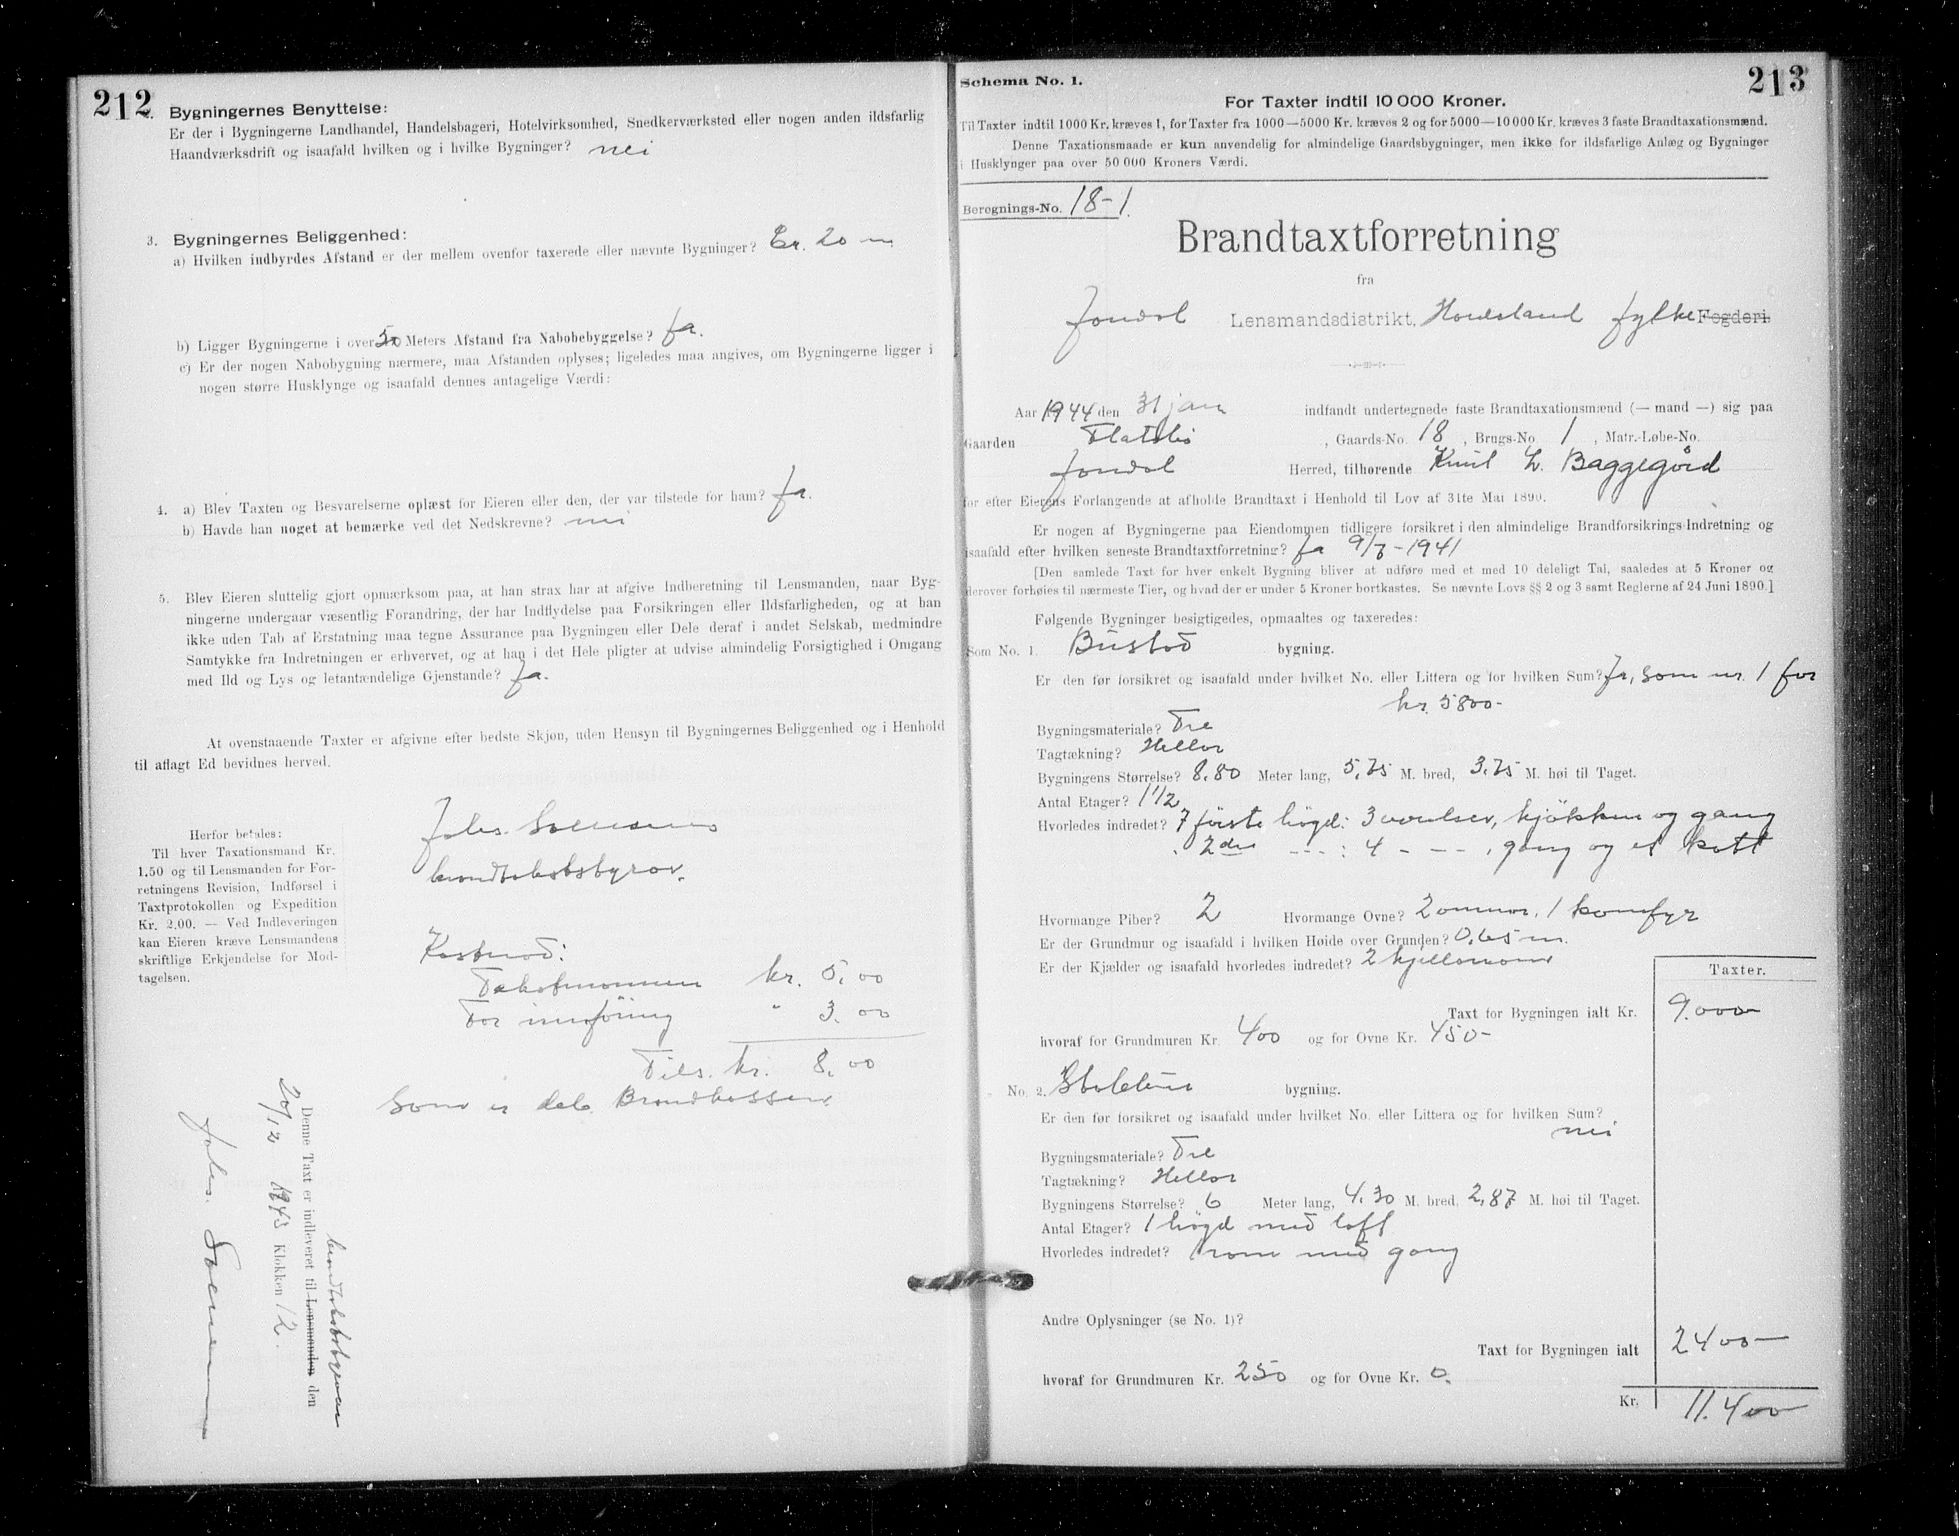 212
Bygningernes Benyttelse:
Er der i Bygningerne Landhandel, Handelsbageri, Hotelvirksomhed, Snedkerværksted eller nogen anden ildsfarlig
Haandværksdrift og isaafald hvilken og i hvilke Bygninger? nei
3. Bygningernes Beliggenhed:
a) Hvilken indbyrdes Afstand er der mellem ovenfor taxerede eller nævnte Bygninger? Er. 20 m
b) Ligger Bygningerne i over 50 Meters Afstand fra Nabobebyggelse? Ja.
c) Er der nogen Nabobygning nærmere, maa Afstanden oplyses; ligeledes maa angives, om Bygningerne ligger i
nogen større Husklynge og isaafald dennes antagelige Værdi:
4. a) Blev Taxten og Besvarelserne oplæst for Eieren eller den, der var tilstede for ham? Ja.
b) Havde han noget at bemærke ved det Nedskrevne? nei
5. Blev Eieren sluttelig gjort opmærksom paa, at han strax har at afgive Indberetning til Lensmanden, naar Byg-
ningerne undergaar væsentlig Forandring, der har Indflydelse paa Forsikringen eller Ildsfarligheden, og at han
ikke uden Tab af Erstatning maa tegne Assurance paa Bygningen eller Dele deraf i andet Selskab, medmindre
Samtykke fra Indretningen er erhvervet, og at han i det Hele pligter at udvise almindelig Forsigtighed i Omgang
med Ild og Lys og letantændelige Gjenstande? Ja.
At ovenstaaende Taxter er afgivne efter bedste Skjøn, uden Hensyn til Bygningernes Beliggenhed og i Henhold
til aflagt Ed bevidnes herved.
Johs.
Herfor betales:
Til hver Taxationsmand Kr.
1.50 og til Lensmanden for For-
retningens Revision, Indførsel i
Taxtprotokollen og Expedition
Kr. 2.00. — Ved Indleveringen
kan Eieren kræve Lensmandens
skriftlige Erkjendelse for Mod-
tagelsen.
Kostnad:
Takstmannen kr. 5,00
For innføring " 3.00
Tils. kr. 8,00
Som er dek. Brandkassen
Denne Taxt er indleveret til Lensmanden den
20/12 1943 Klokken 12.
Johs.
213
Schema No. 1.
For Taxter indtil 10 000 Kroner.
Til Taxter indtil 1000 Kr. kræves 1, for Taxter fra 1000—5000 Kr. kræves 2 og for 5000—10000 Kr. kræves 3 faste Brandtaxationsmænd.
Denne Taxationsmaade er kun anvendelig for almindelige Gaardsbygninger, men ikke for ildsfarlige Anlæg og Bygninger
i Husklynger paa over 50 000 Kroners Værdi.
Beregnings-No. 18-1.
Brandtaxtforretning
fra
Jondal Lensmandsdistrikt, Hordaland fylke Fogderi
Aar 1944 den 31 jan indfandt undertegnede faste Brandtaxationsmænd (— mand —) sig paa
Gaarden Flatebø, Gaards-No. 18, Brugs-No. 1, Matr.-Løbe-No.
Jondal Herred, tilhørende Knut L. Baggegård
for efter Eierens Forlangende at afholde Brandtaxt i Henhold til Lov af 31te Mai 1890.
Er nogen af Bygningerne paa Eiendommen tidligere forsikret i den almindelige Brandforsikrings-Indretning og
isaafald efter hvilken seneste Brandtaxtforretning? Ja 9/7-1941
[Den samlede Taxt for hver enkelt Bygning bliver at udføre med et med 10 deleligt Tal, saaledes at 5 Kroner og
derover forhøies til nærmeste Tier, og hvad der er under 5 Kroner bortkastes. Se nævnte Lovs §§ 2 og 3 samt Reglerne af 24 Juni 1890.]
Følgende Bygninger besigtigedes, opmaaltes og taxeredes:
Som No. 1. Bustad bygning.
Er den før forsikret og isaafald under hvilket No. eller Littera og for hvilken Sum? Ja, som nr. 1 for
kr. 5800-
Bygningsmateriale? Tre
Tagtækning? Hellor
Bygningens Størrelse? 8,80 Meter lang, 5,75 M. bred, 3,75 M. høi til Taget.
Antal Etager? 1 1/2
Hvorledes indredet? I første høgd: 3 værelser, kjøkken og gang
. 2dre ---: 4 - -- , gang og et kott
Hvormange Piber? 2 Hvormange Ovne? 2 omnar, 1 komfyr
Er der Grundmur og isaafald i hvilken Høide over Grunden? 0,65 m.
Er der Kjælder og isaafald hvorledes indredet? 2 kjellerrom
Taxter.
Taxt for Bygningen ialt Kr. 9.000-
hvoraf for Grundmuren Kr. 400 og for Ovne Kr. 450-
No. 2. bygning.
Er den før forsikret og isaafald under hvilket No. eller Littera og for hvilken Sum?
nei
Bygningsmateriale? Tre
Tagtækning? Hellor
Bygningens Størrelse? 6 Meter lang, 4,30 M. bred, 2,87 M. høi til Taget.
Antal Etager? 1 høgd med loft
Hvorledes indredet? 1 rom med gang
Andre Oplysninger (se No. 1)?
Taxt for Bygningen ialt 2400-
hvoraf for Grundmuren Kr. 250 og for Ovne Kr. 0.
Kr. 11.400